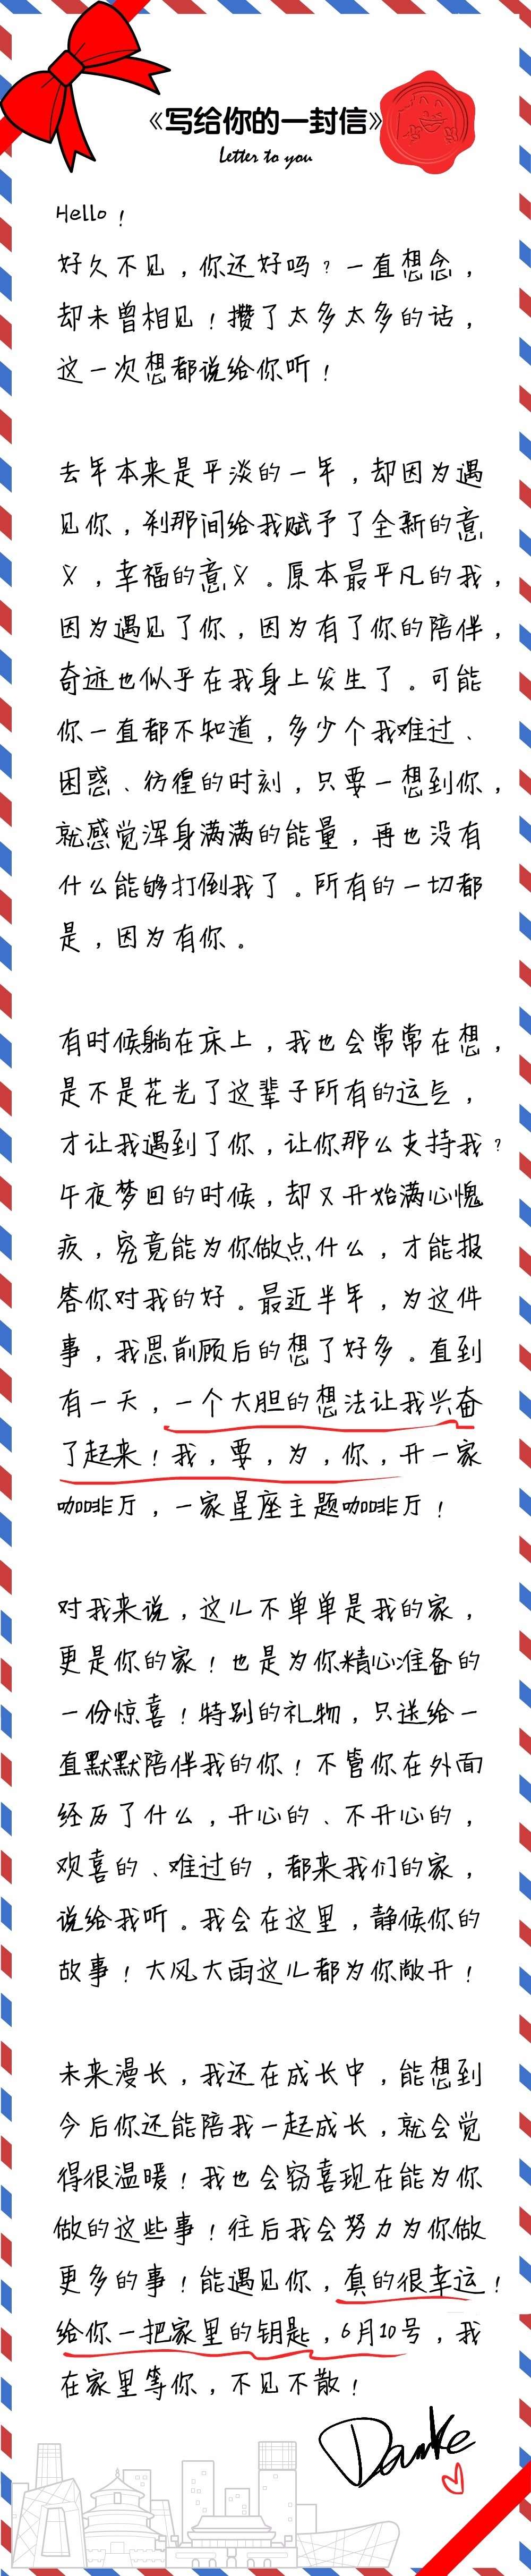 《写给你的一封信》
Letter to you
Hello！
好久不见，你还好吗？一直想念，
却未曾相见！攒了太多太多的话，
这一次想都说给你听！
去年本来是平淡的一年，却因为遇
见你，刹那间给我赋予了全新的意
义，幸福的意义。原本最平凡的我，
因为遇见了你，因为有了你的陪伴，
奇迹也似乎在我身上发生了。可能
你一直都不知道，多少个我难过、
困惑、彷徨的时刻，只要一想到你，
就感觉浑身满满的能量，再也没有
什么能够打倒我了。所有的一切都
是，因为有你。
有时候躺在床上，我也会常常在想，
是不是花光了这辈子所有的运气，
才让我遇到了你，让你那么支持我？
午夜梦回的时候，却又开始满心愧
疚，究竟能为你做点什么，才能报
答你对我的好。最近半年，为这件
事，我思前顾后的想了好多。直到
有一天，一个大胆的想法让我兴奋
了起来！我，要，为，你，开一家
咖啡厅，一家星座主题咖啡厅！
对我来说，这儿不单单是我的家，
更是你的家！也是为你精心准备的
一份惊喜！特别的礼物，只送给一
直默默陪伴我的你！不管你在外面
经历了什么，开心的、不开心的，
欢喜的、难过的，都来我们的家，
说给我听。我会在这里，静候你的
故事！大风大雨这儿都为你敞开！
未来漫长，我还在成长中，能想到
今后你还能陪我一起成长，就会觉
得很温暖！我也会窃喜现在能为你
做的这些事！往后我会努力为你做
更多的事！能遇见你，真的很幸运！
给你一把家里的钥匙，6月10号，我
在家里等你，不见不散！